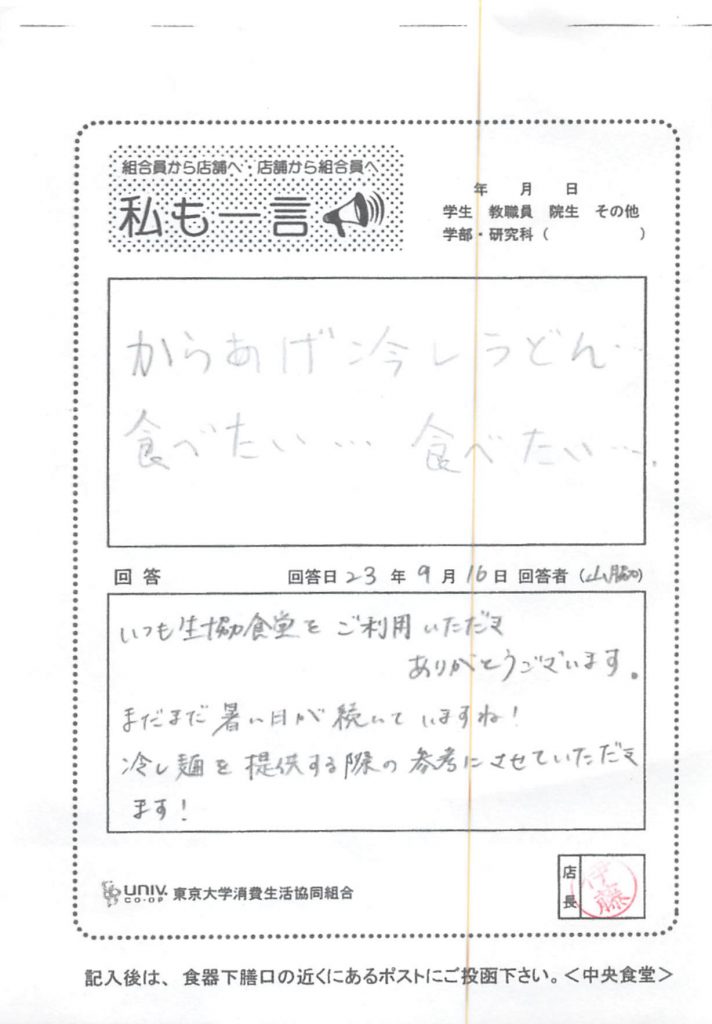 組合員から店舗へ・店舗から組合員へ
私も一言
年 月 日
学生 教職員 院生 その他
学部・研究科( )
からあげ冷しうどん…
食べたい… 食べたい….
回答 回答日 23 年 9 月 16 日 回答者 (山脇)
いつも生協食堂をご利用いただき
ありがとうございます。
まだまだ暑い日が続いていますね!
冷し麺を提供する際の参考にさせていただき
ます!
UNIV. CO-OP 東京大学消費生活協同組合
店長 伊藤
記入後は、食器下膳口の近くにあるポストにご投函下さい。<中央食堂>